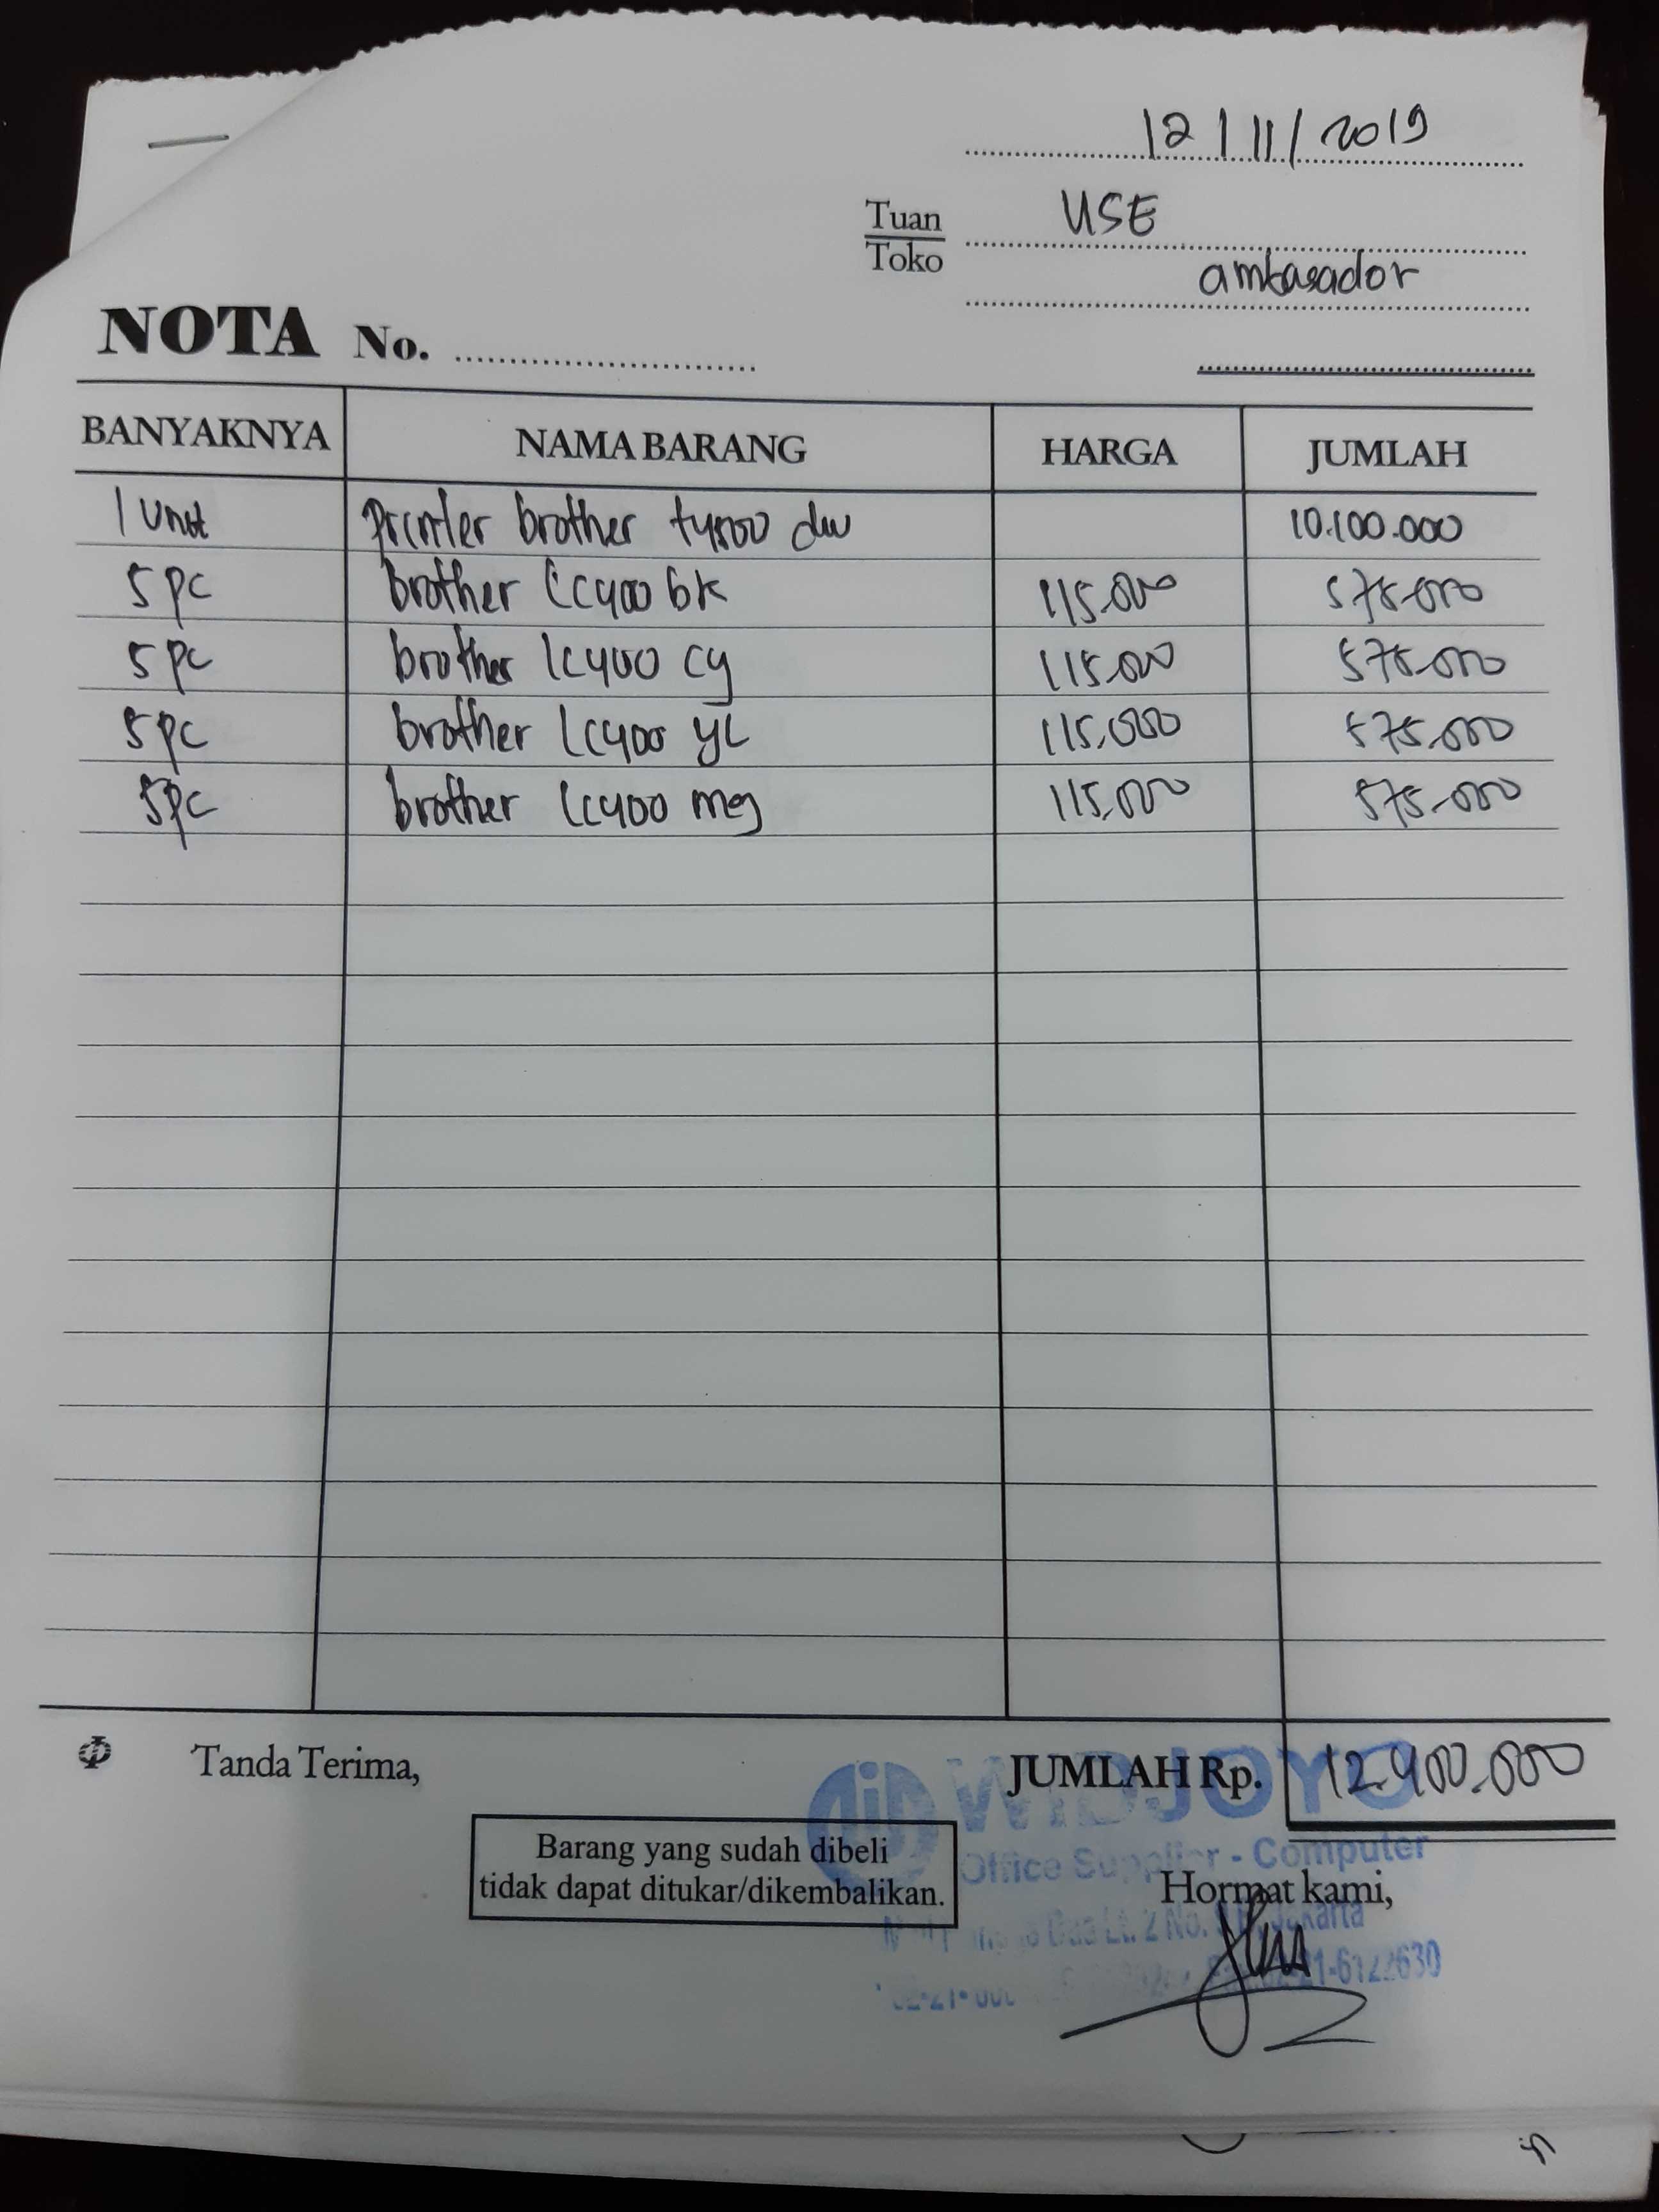 12/11/2019
Tuan USE
Toko ambasador
NOTA No.
BANYAKNYA NAMA BARANG HARGA JUMLAH
1 Unit Printer brother t4500 dw 10.100.000
5 pc brother lc400 bk 115.000 575.000
5 pc brother lc400 cy 115.000 575.000
5 pc brother lc400 yl 115.000 575.000
5 pc brother lc400 mg 115.000 575.000
Tanda Terima, JUMLAH Rp. 12.400.000
WIDJOYO
Barang yang sudah dibeli
tidak dapat ditukar/dikembalikan.
Office Supplier - Computer
Hormat kami,
Dua Lt. 2 No. Jakarta